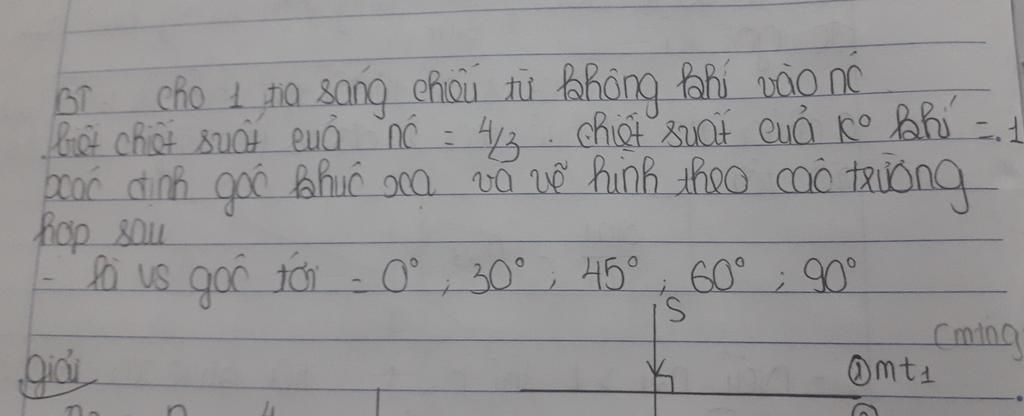 BT cho 1 tia sáng chiếu từ không khí vào nc
biết chiết suất của nc = 4/3 . chiết suất của ko khí = 1
xác định góc khúc xạ và vẽ hình theo các trường
hợp sau
- Đối vs góc tới = 0° ; 30° ; 45° ; 60° ; 90°
S
giải
① mt1